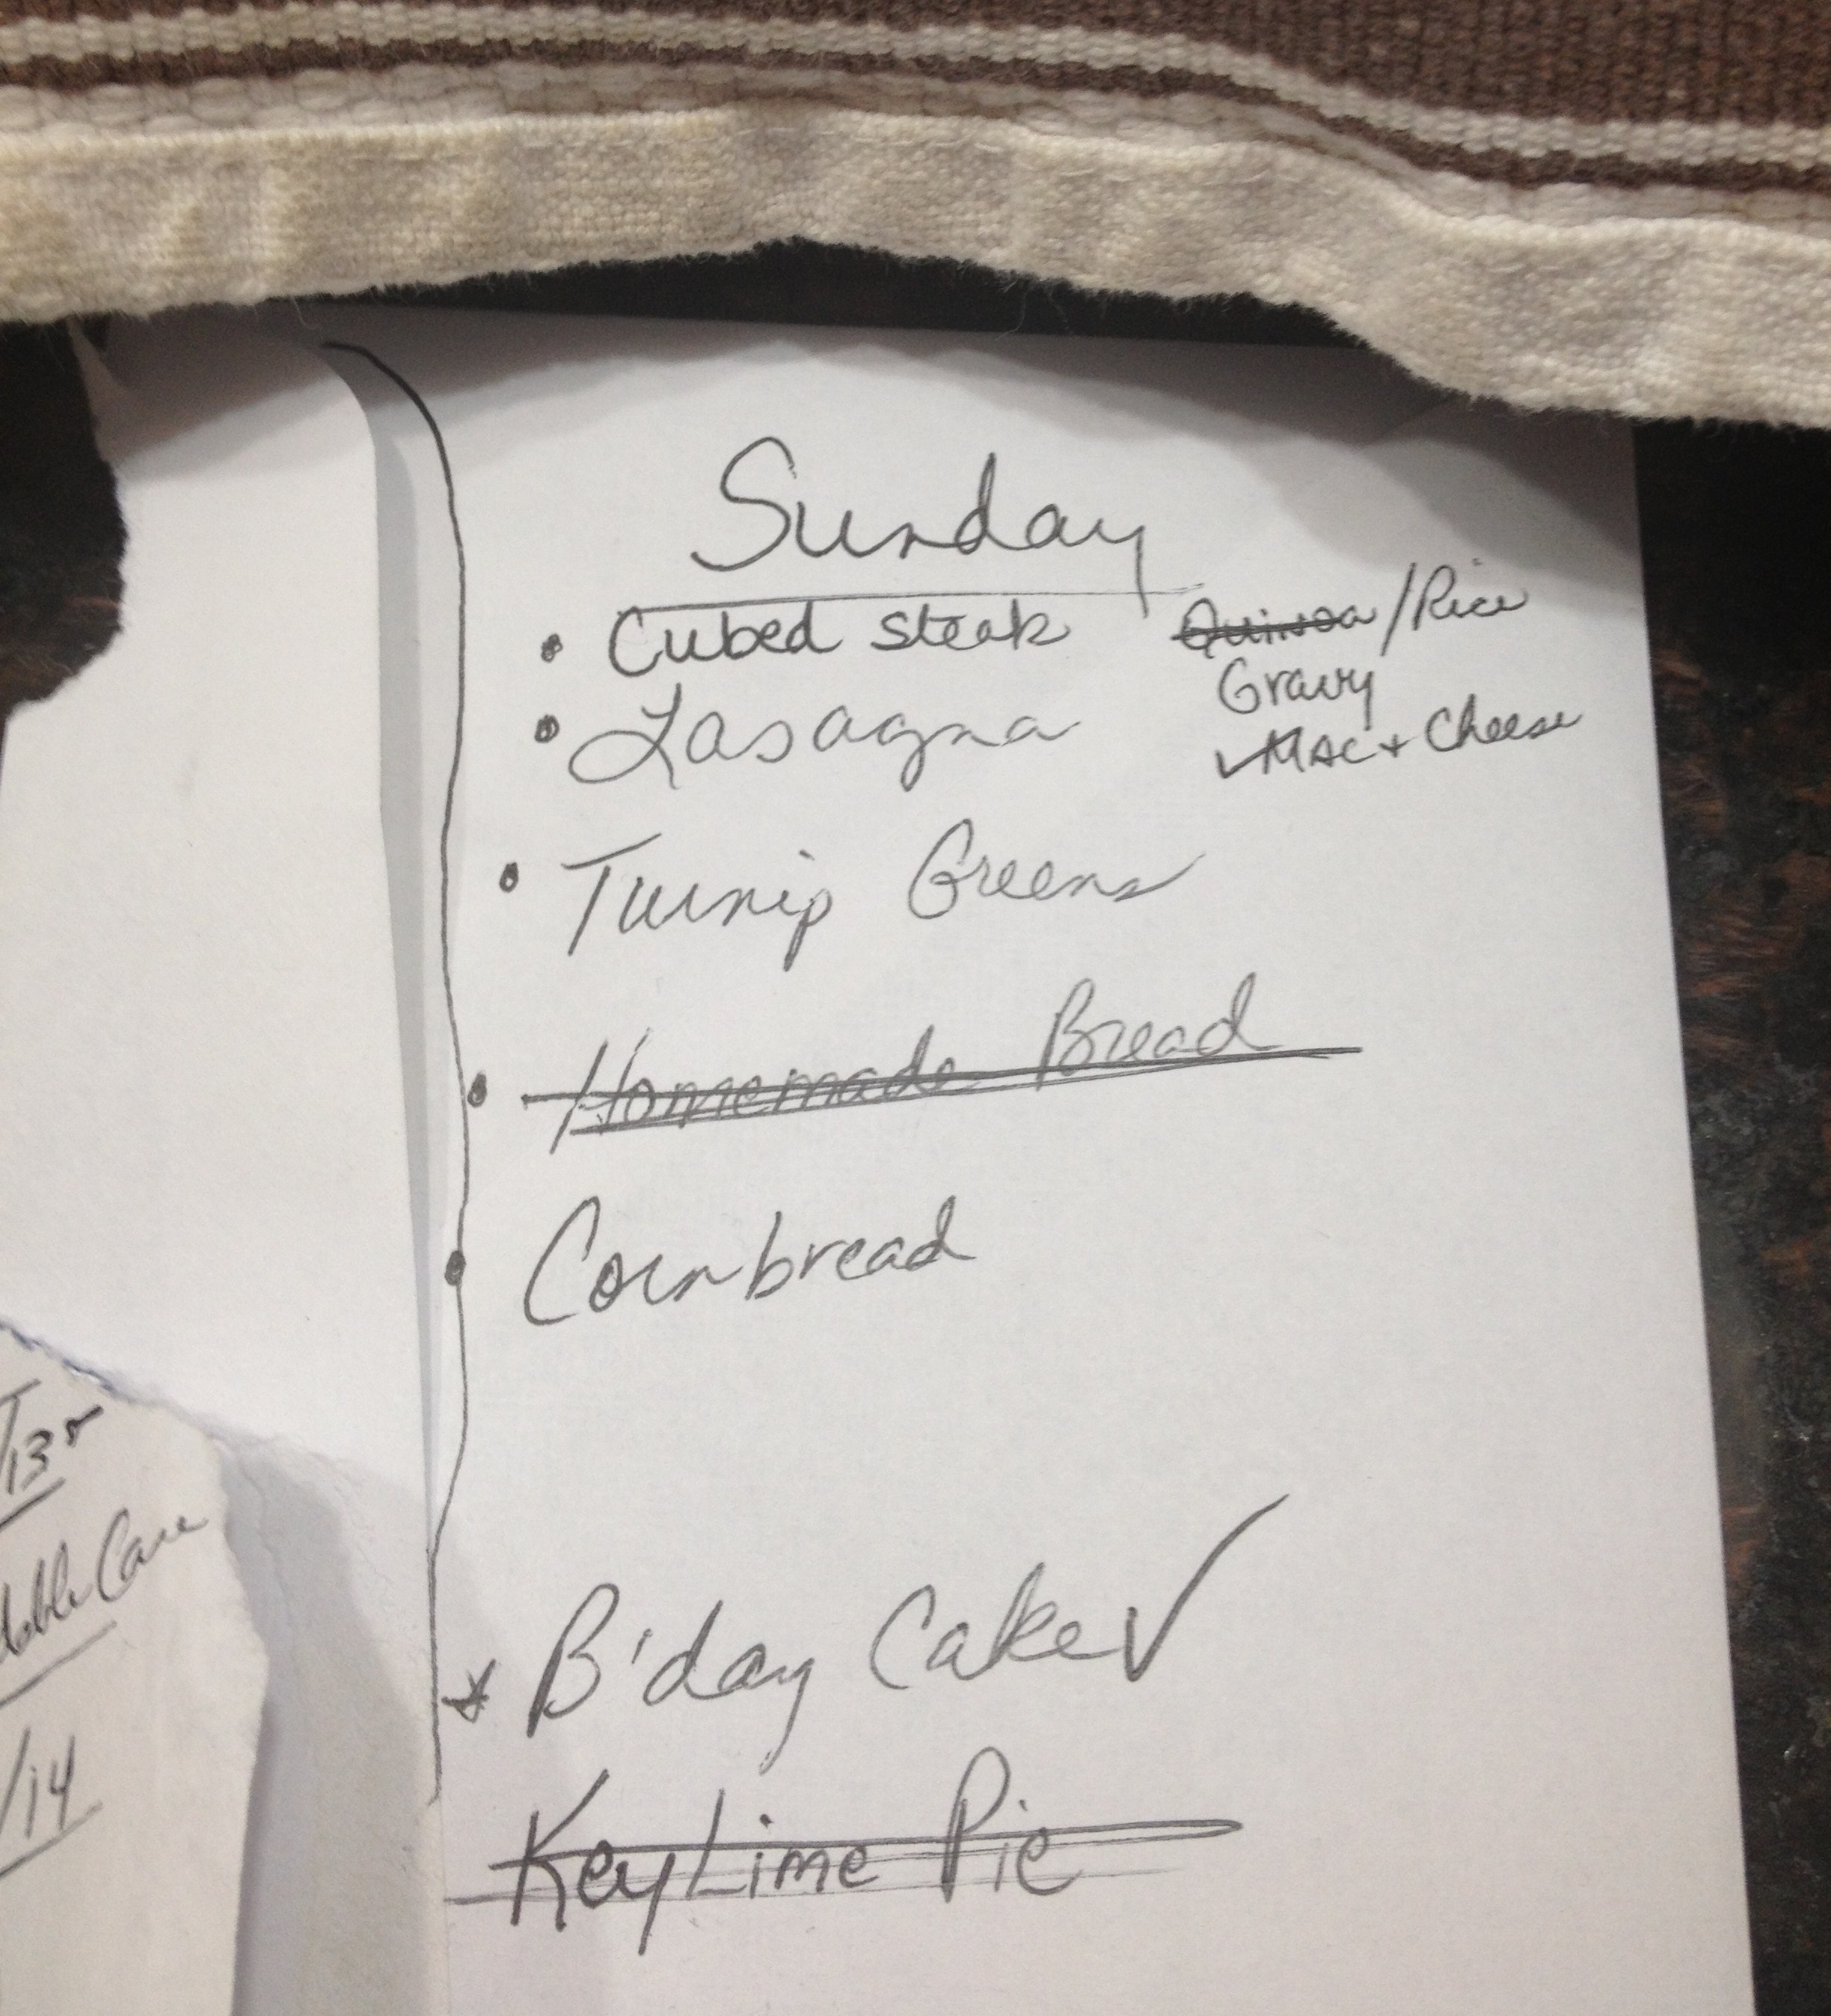 Sunday
• Cubed steak
Quinoa/Rice
Gravy
• Lasagna
✓MAC + Cheese
• Turnip Greens
• Homemade Bread
• Cornbread
* B'day Cake ✓
Key Lime Pie
/13
Care
/14